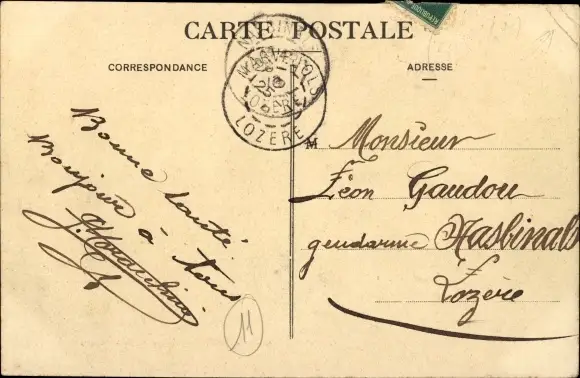 CARTE POSTALE
CORRESPONDANCE
ADRESSE
LOZERE
Bonne santé
Bonjour à tous
M Monsieur
Léon Gaudou
gendarme Nasbinals
Lozère
11